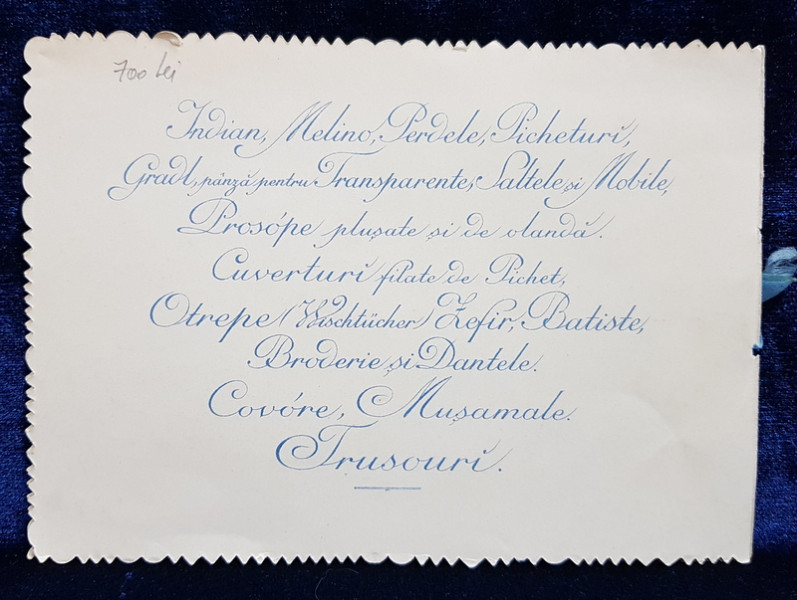 700 lei
Indian, Melino, Perdele, Picheturĭ,
Gradl, pânză pentru Transparente, Saltele și Mobile,
Prosópe plușate și de olandă.
Cuverturĭ filate de Pichet,
Otrepe (Wischtücher) Zefir, Batiste,
Broderie și Dantele.
Covóre, Mușamale.
Trusourĭ.